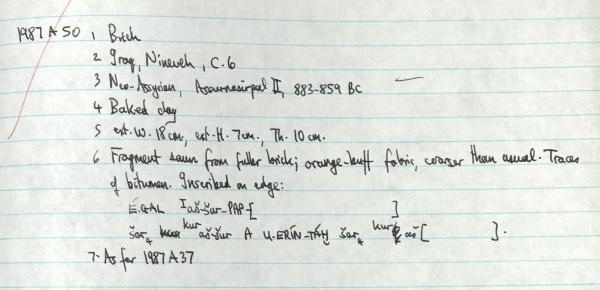 1987 A 50 1 Brick
2 Iraq, Nineveh, C.6
3 Neo-Assyrian, Assurnasirpal II, 883-859 BC
4 Baked clay
5 ext. W. 18 cm, ext. H. 7 cm, Th. 10 cm.
6 Fragment sawn from fuller brick; orange-buff fabric, coarser than usual. Traces
of bitumen. Inscribed on edge:
É.GAL Iaš-šur-PAP-[ ]
šar4 kuraš-šur A U-ERÍN-TÁḪ šar4 kur aš [ ].
7. As for 1987 A 37